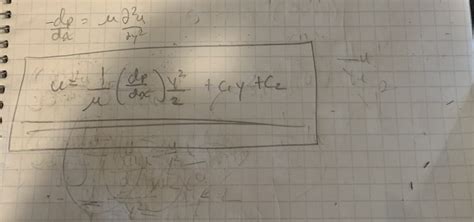 -dp/dx = μ ∂²u/∂y²
u = 1/μ (dp/dx) y²/2 + C₁y + C₂